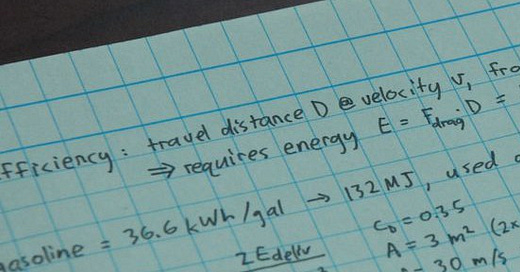 fficiency: travel distance D @ velocity v, fro
⇒ requires energy E = Fdrag·D =
asoline = 36.6 kWh/gal → 132 MJ, used
C_D = 0.35
A = 3 m² (2x
30 m/s